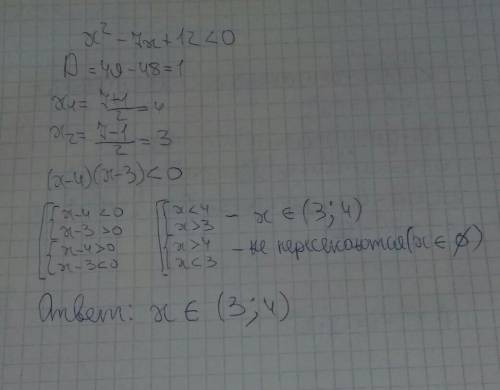 x² - 7x + 12 < 0
D = 49 - 48 = 1
x₁ = (7+1)/2 = 4
x₂ = (7-1)/2 = 3
(x-4)(x-3) < 0
[ { x-4 < 0   [ { x < 4
x-3 > 0   x > 3 - x ∈ (3; 4)
{ x-4 > 0   { x > 4
x-3 < 0   x < 3 - не пересекаются (x ∈ ∅)
Ответ: x ∈ (3; 4)